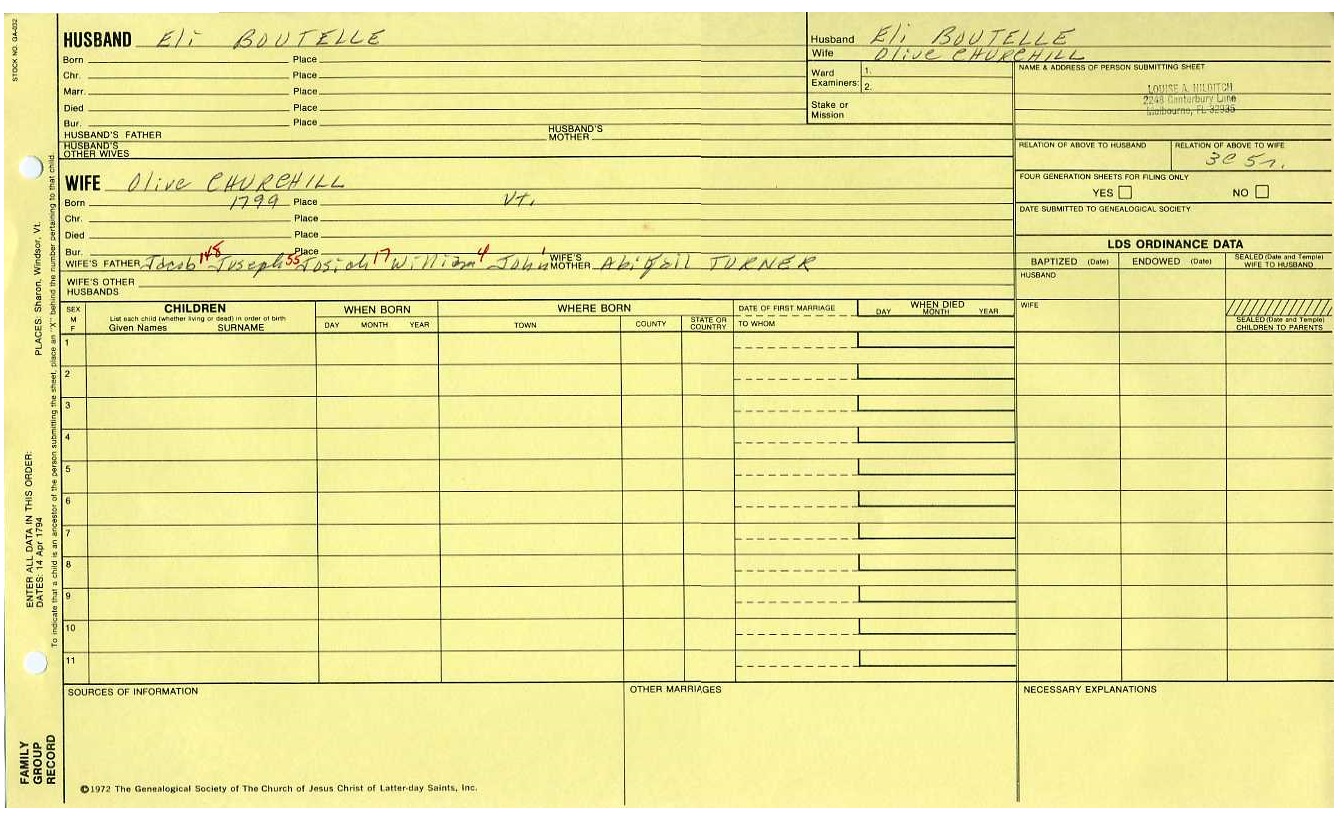 STOCK NO. GA-032
HUSBAND Eli BOUTELLE
Born Place
Chr. Place
Marr. Place
Died Place
Bur. Place
HUSBAND'S FATHER HUSBAND'S MOTHER
HUSBAND'S OTHER WIVES
Husband Eli BOUTELLE
Wife Olive CHURCHILL
Ward Examiners: 1.
2.
Stake or Mission
NAME & ADDRESS OF PERSON SUBMITTING SHEET
LOUISE A. HILDITCH
2248 Canterbury Line
Melbourne, FL 32935
RELATION OF ABOVE TO HUSBAND RELATION OF ABOVE TO WIFE
3C 5r.
FOUR GENERATION SHEETS FOR FILING ONLY
YES NO
DATE SUBMITTED TO GENEALOGICAL SOCIETY
WIFE Olive CHURCHILL
Born 1799 Place Vt.
Chr. Place
Died Place
Bur. Place
WIFE'S FATHER Jacob 148 Joseph 55 Josiah 17 William 4 John 1 WIFE'S MOTHER Abigail TURNER
WIFE'S OTHER HUSBANDS
LDS ORDINANCE DATA
BAPTIZED (Date) ENDOWED (Date) SEALED (Date and Temple) WIFE TO HUSBAND
HUSBAND
WIFE
SEALED (Date and Temple) CHILDREN TO PARENTS
SEX M F
CHILDREN
List each child (whether living or dead) in order of birth
Given Names SURNAME
WHEN BORN
DAY MONTH YEAR
WHERE BORN
TOWN COUNTY STATE OR COUNTRY
DATE OF FIRST MARRIAGE
TO WHOM
WHEN DIED
DAY MONTH YEAR
1
2
3
4
5
6
7
8
9
10
11
SOURCES OF INFORMATION OTHER MARRIAGES NECESSARY EXPLANATIONS
©1972 The Genealogical Society of The Church of Jesus Christ of Latter-day Saints, Inc.
FAMILY GROUP RECORD
ENTER ALL DATA IN THIS ORDER:
DATES: 14 Apr 1794 PLACES: Sharon, Windsor, Vt.
To indicate that a child is an ancestor of the person submitting the sheet, place an "X" behind the number pertaining to that child.